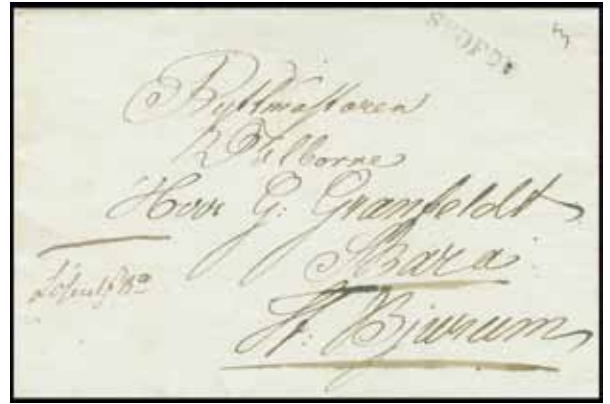 3
Ryttmästaren
Wälborne
Herr G: Granfeldt
Skara
St: Bjurum